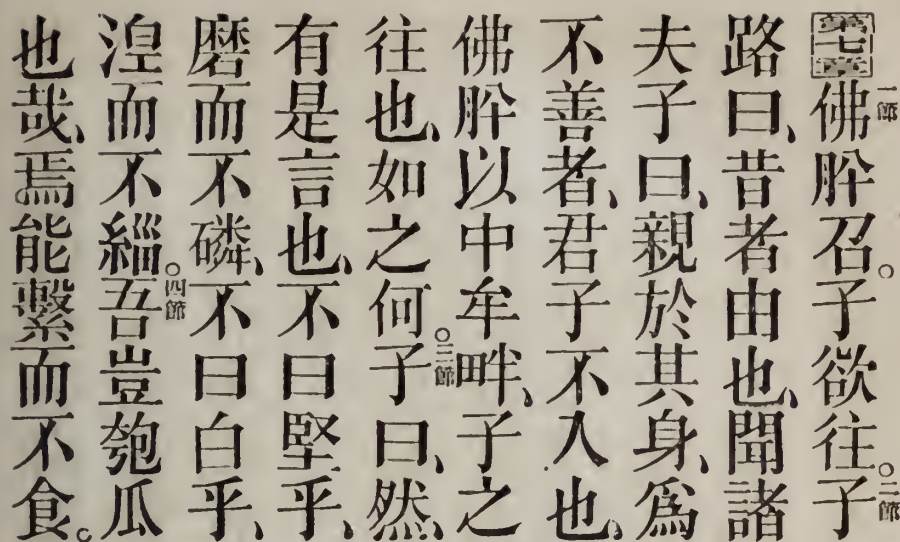 第七章 一節 佛肸召。子欲往。二節 子
路曰、昔者由也、聞諸
夫子曰、親於其身、爲
不善者、君子不入也、
佛肸以中牟畔、子之
往也、如之何○三節 子曰、然、
有是言也、不曰堅乎、
磨而不磷、不曰白乎、
湼而不緇。○四節 吾豈匏瓜
也哉、焉能繫而不食。